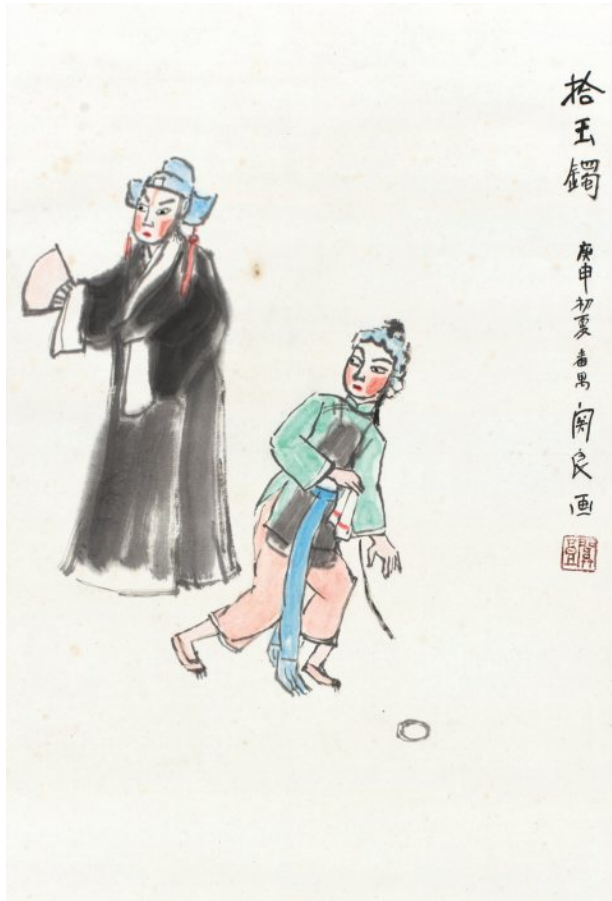 拾玉鐲
庚申初夏番禺関良画